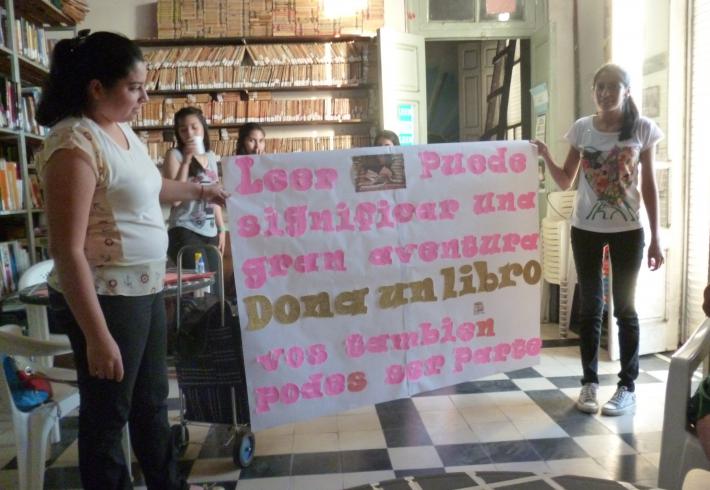 Leer Puede
significar una
gran aventura
Dona un libro
vos tambien
podes ser parte